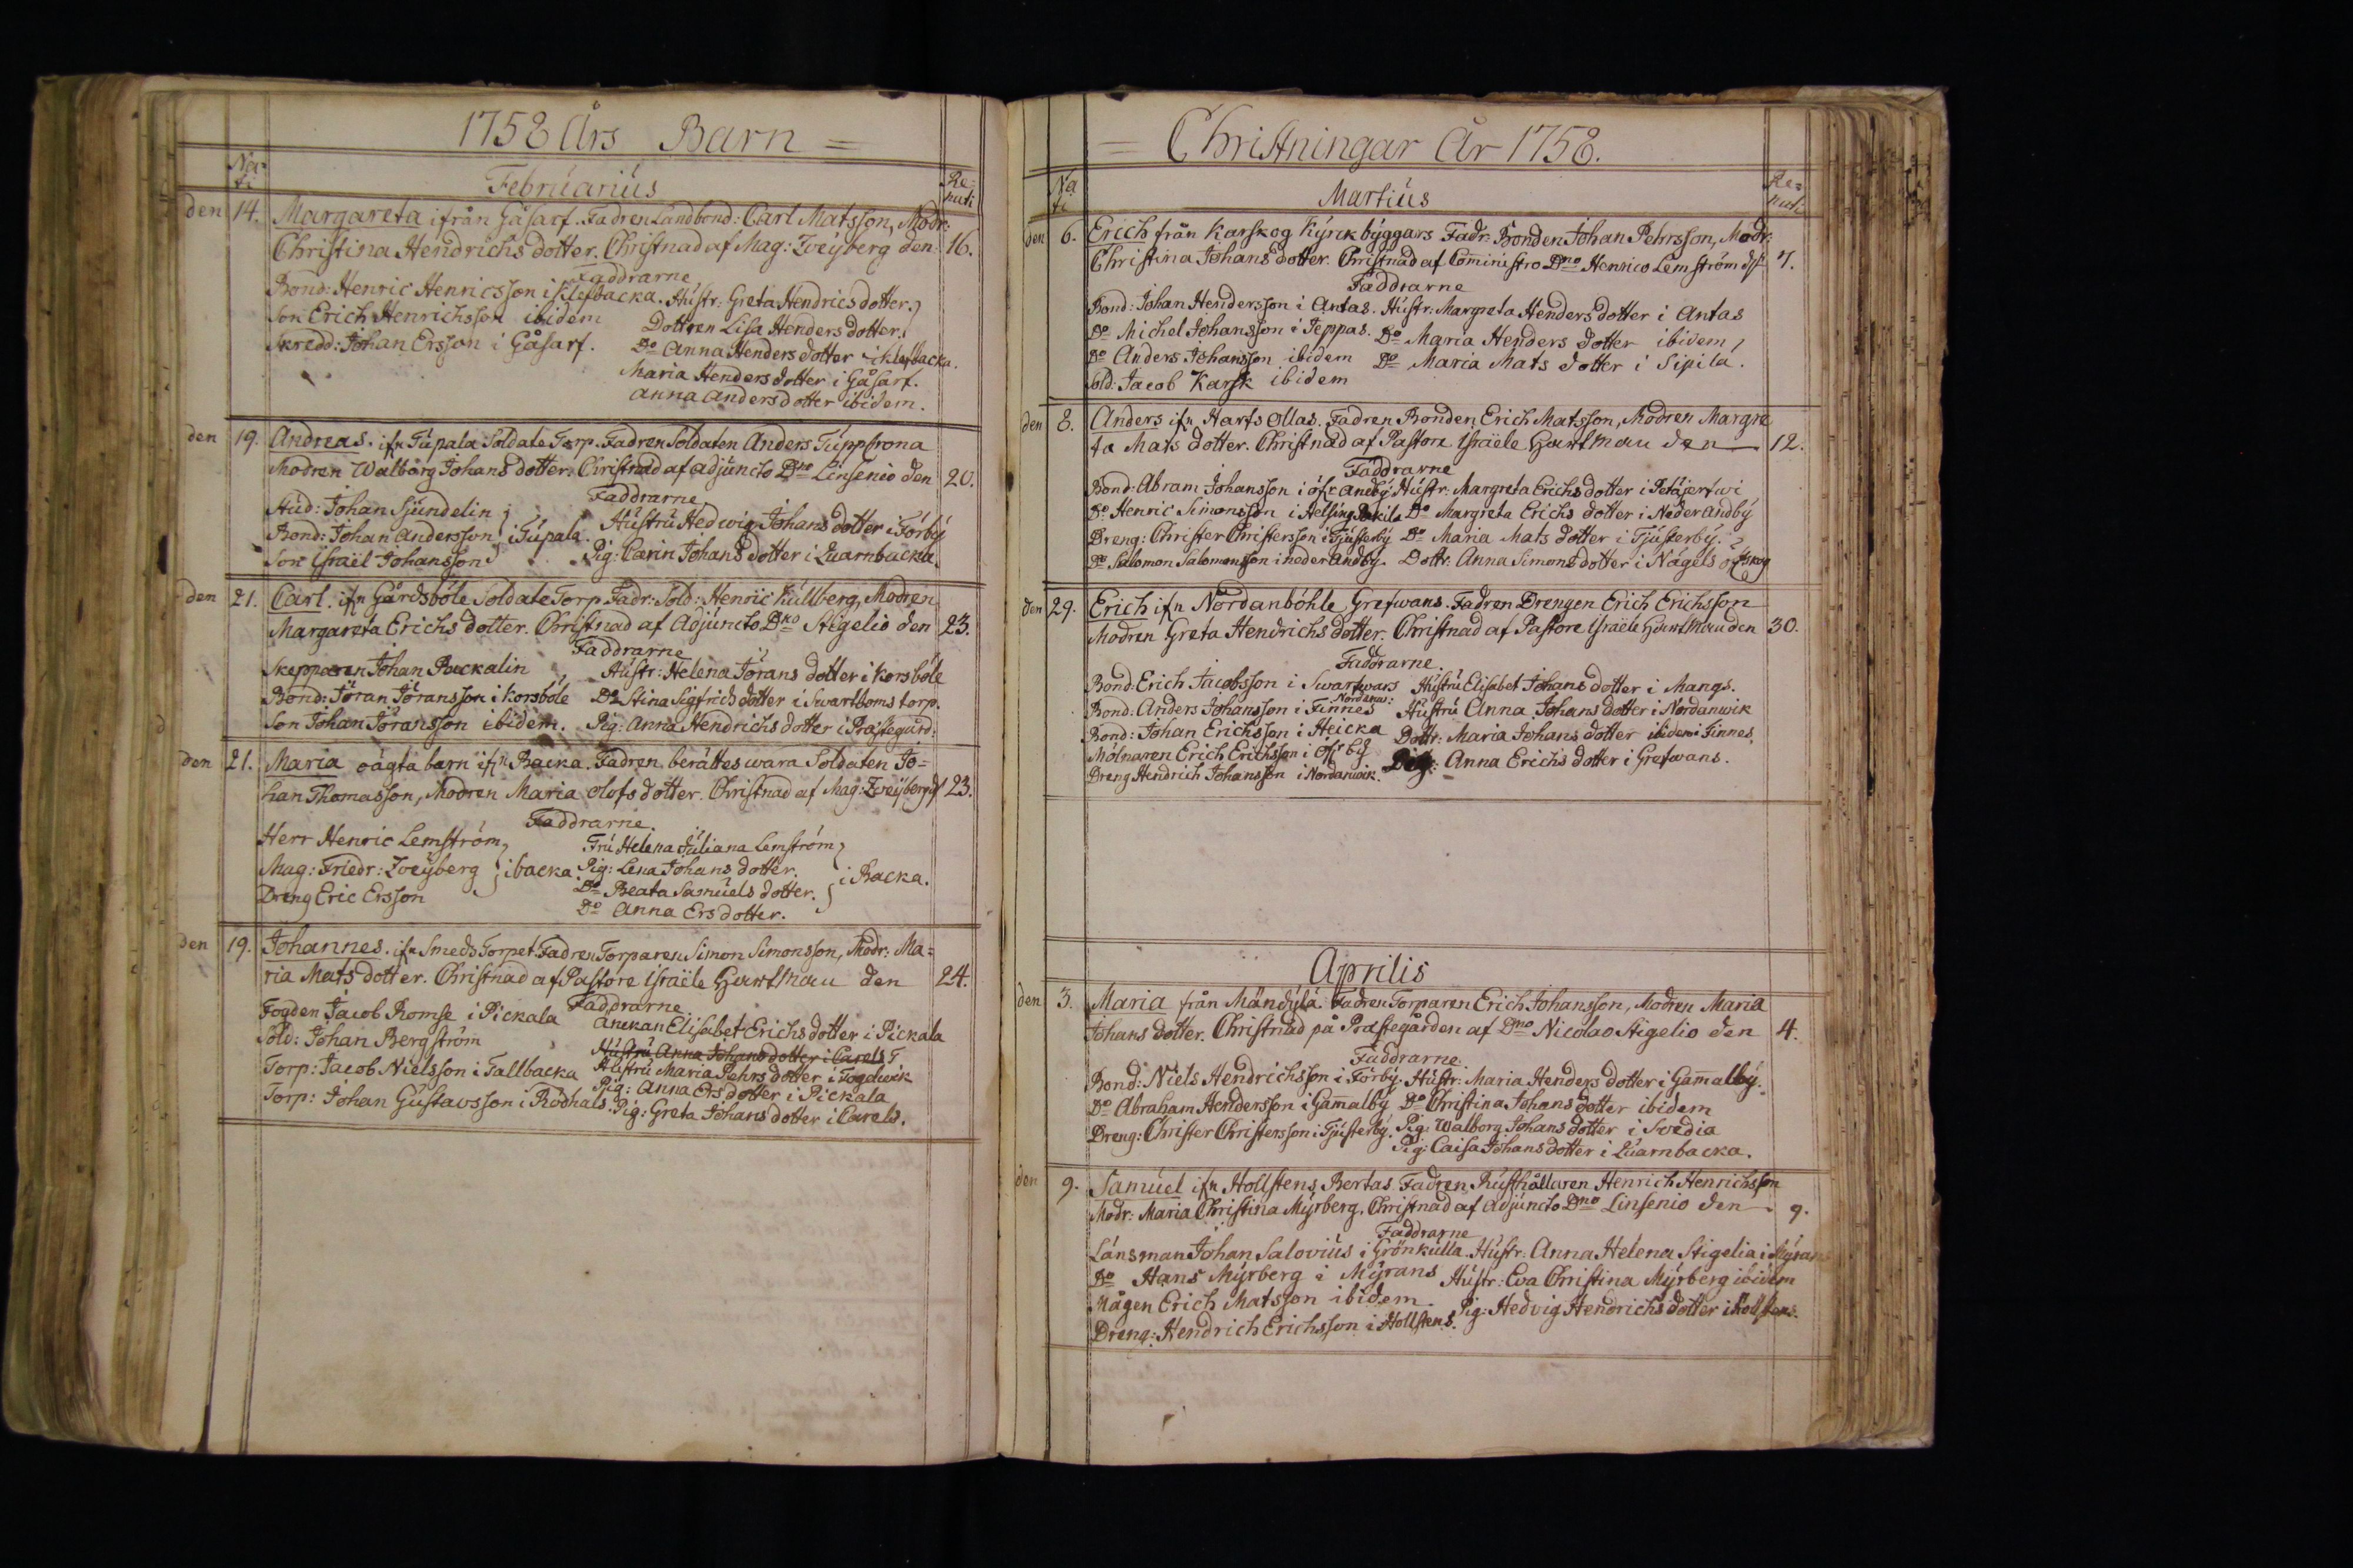 1758 Års Barn =
Nati
Februarius
Renati
den 14. Margareta ifrån Gåsarf. Fadren Landbond: Carl Matsson, Modr:
Christina Hendrichs dotter. Christnad af Mag: Zveÿberg den 16.
Faddrarne
Bond: Henric Henricsson i Klefbacka. Hustr: Greta Hendrics dotter.
Son Erich Henrichsson ibidem Dottren Lisa Henders dotter.
Skredd: Johan Ersson i Gåsarf. Do Anna Henders dotter i Klefbacka.
Maria Henders dotter i Gåsarf.
Anna Anders dotter ibidem.
den 19. Andreas. ifn Tupala Soldate Torp. Fadren Soldaten Anders Tuppfrona
Modren Walborg Johans dotter. Christnad af Adjuncto Dno Linsenio den 20.
Faddrarne
Aud: Johan Sjundelin
Hustru Hedwig Johans dotter i Förbÿ
Bond: Johan Andersson i Tupala.
Son Israël Johansson Pig: Carin Johans dotter i Quarnbacka.
den 21. Carl. ifn Gårdsböle Soldate Torp. Fadr: Sold: Henric Kullberg, Modren
Margareta Erichs dotter. Christnad af Adjuncto Dno Stigelio den 23.
Faddrarne
Skepparen Johan Beckalin Hustr: Helena Jörans dotter i Korsböle
Bond: Jöran Jöransson i Korsböle Do Stina Sigfrids dotter i Swartboms torp.
Son Johan Jöransson ibidem. Pig: Anna Hendrichs dotter i Prästegård:
den 21. Maria oägta barn ifn Backa. Fadren berättes wara Soldaten Jo=
han Thomasson, Modren Maria Olofs dotter. Christnad af Mag: Zveÿberg d 23.
Faddrarne.
Herr Henric Lemström Fru Helena Juliana Lemström
Mag: Friedr: Zveÿberg i backa Pig: Lena Johans dotter.
Dreng Eric Ersson Do Beata Samuels dotter. i Backa.
Do Anna Ers dotter.
den 19. Johannes. ifn Smeds Torpet. Fadren Torparen Simon Simonsson, Modr: Ma=
ria Mats dotter. Christnad af Pastore Israële Hartman den 24.
Faddrarne
Fogden Jacob Romse i Pickala Anckan Elisabet Erichs dotter i Pickala
Sold: Johan Bergström Hustru Anna Johans dotter i Carels T
Torp: Jacob Nielsson i Tallbacka Hustru Maria Pehrs dotter i Fogelwik
Pig: Anna Ers dotter i Pickala
Torp: Johan Gustavsson i Rödhals. Pig: Greta Johans dotter i Carels.
= Christningar År 1758.
Nati
Martius
Renati
den 6. Erich från Karskog Kÿrckbÿggars Fadr: Bonden Johan Pehrsson, Modr:
Christina Johans dotter. Christnad af Comministro Dno Henrico Lemström d 7.
Faddrarne
Bond: Johan Hendersson i Antas. Hustr: Margreta Henders dotter i Antas
Do Michel Johansson i Teppas. Do Maria Henders dotter ibidem
Do Anders Johansson ibidem Do Maria Mats dotter i Sipilä.
Sold: Jacob Karsk ibidem
den 8. Anders ifn Harfs Ollas. Fadren Bonden Erich Matsson, Modren Margre
ta Mats dotter. Christnad af Pastore Israële Hartman den 12.
Faddrarne
Bond: Abram Johansson i öfr Andbÿ Hustr: Margreta Erichs dotter i Petäjerfwi
Do Henric Simonsson i Helsing Do Margreta Erichs dotter i Neder Andbÿ
Dreng: Christer Christersson i Tjusterbÿ Do Maria Mats dotter i Tjusterbÿ.
Do Salomon Salomonsson i neder Andbÿ. Dottr: Anna Simons dotter i Nägels
den 29. Erich ifn Nordanböhle Grefwans. Fadren Drengen Erich Erichsson
Modren Greta Hendrichs dotter. Christnad af Pastore Israële Hartman den 30.
Faddrarne.
Bond: Erich Jacobsson i Swartwars Hustru Elisabet Johans dotter i Mangs.
Bond: Anders Johansson i Finnes Hustru Anna Johans dotter i Nordanwik
Bond: Johan Erichsson i Heicka Dottr: Maria Johans dotter ibidem Finnes.
Mölnaren Erich Erichsson i Öfrbÿ Pig: Anna Erichs dotter i Grefwans.
Dreng Hendrich Johansson i Nordanwik.
Aprilis
den 3. Maria från Mändÿlä. Fadren Torparen Erich Johansson, Modren Maria
Johans dotter. Christnad på Prästegården af Dno Nicolao Stigelio den 4.
Faddrarne.
Bond: Niels Hendrichsson i Förbÿ. Hustr: Maria Henders dotter i Gam̄albÿ.
Do Abraham Hendersson i Gam̄albÿ Do Christina Johans dotter ibidem
Dreng: Christer Christersson i Tjusterbÿ. Pig: Walborg Johans dotter i Svedia
Pig: Caisa Johans dotter i Quarnbacka.
den 9. Samuel ifn Hollstens Bertas. Fadren Rusthållaren Henrich Henrichsson
Modr: Maria Christina Mÿrberg. Christnad af Adjuncto Dno Linsenio den 9.
Faddrarne
Länsman Johan Salovius i Grönkulla. Hustr: Anna Helena Stigelia i Mÿrans
Do Hans Mÿrberg i Mÿrans Hustr: Eva Christina Mÿrberg ibidem
Mågen Erich Matsson ibidem. Pig: Hedvig Hendrichs dotter i Hollstens.
Dreng: Hendrich Erichsson i Hollstens.